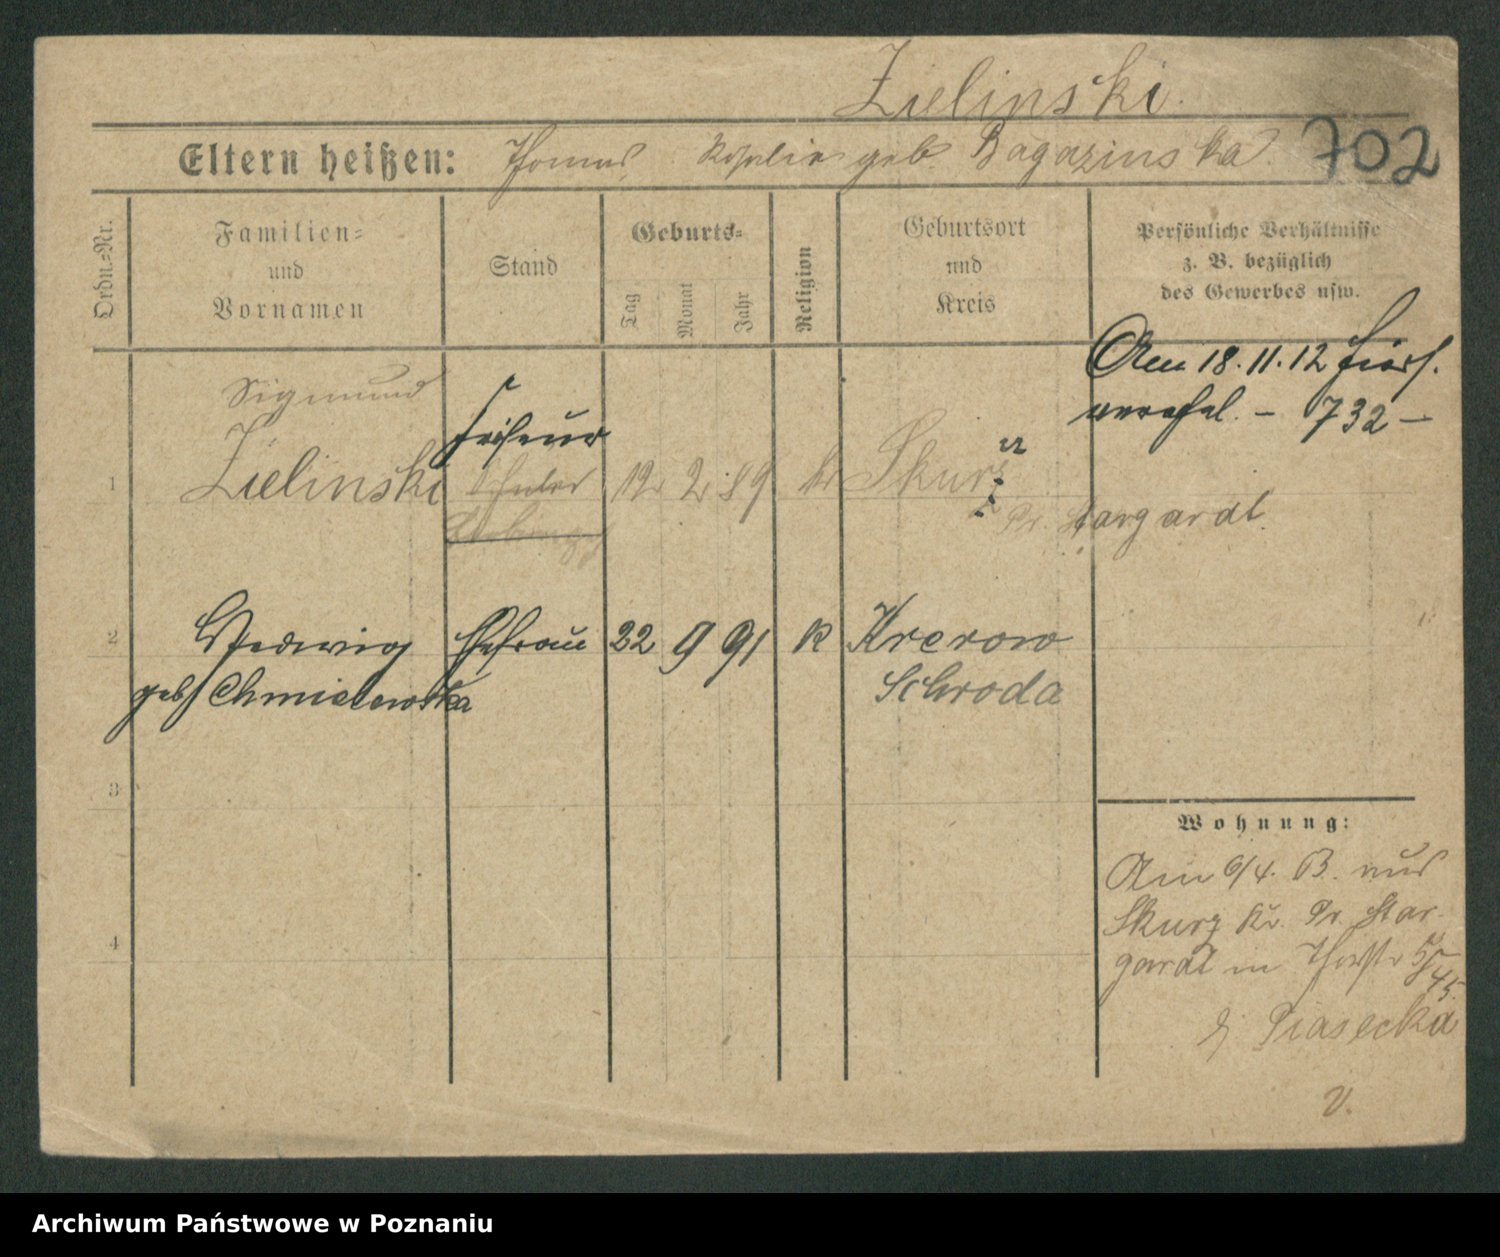 Zielinski.
Eltern heißen: Thomas, Rosalie geb. Bagazinska.
702
Ordn.=Nr.
Familien=
und
Vornamen
Stand
Geburts=
Tag
Monat
Jahr
Religion
Geburtsort
und
Kreis
Persönliche Verhältnisse
z. B. bezüglich
des Gewerbes usw.
Am 18.11.12 hiers.
verehel. – 732 –
Sigmund
Friseur
1 Zielinski 12 2 89 k Skurz
Pr. Stargardt.
2 Hedwig Ehefrau 22 9 91 k Krerowo
geb Chmielewska Schroda
3
Wohnung:
Am 6/4. B. aus
Skurz Kr. Pr. Star-
gardt in Thorstr 5
45
b Piasecka
4
V.
Archiwum Państwowe w Poznaniu